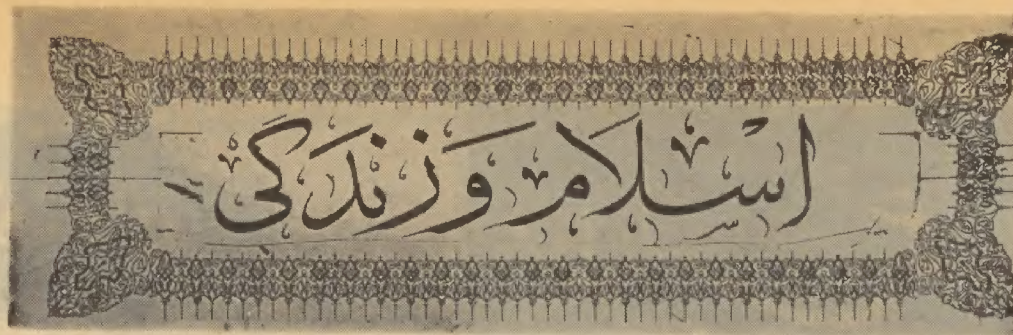 اسلام و زندگی